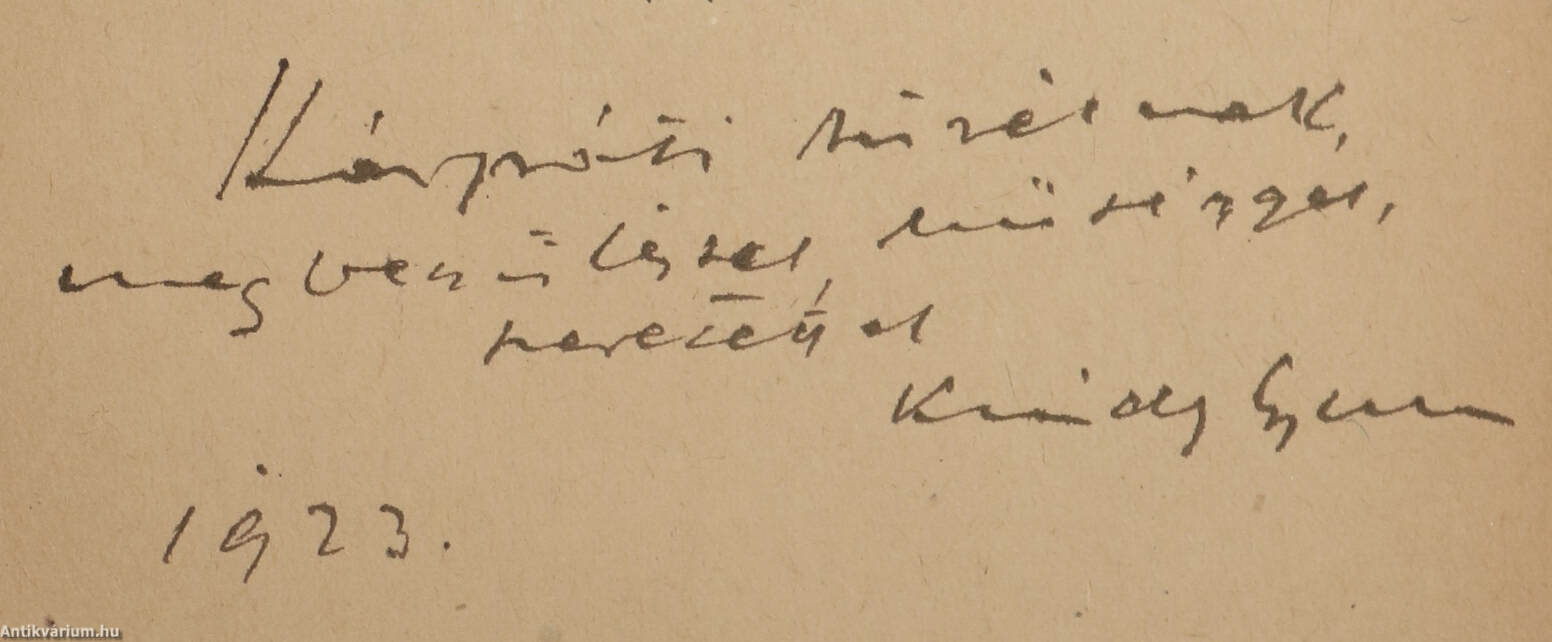 Kárpáti Aurélnak,
megbecsüléssel, hűséggel,
szeretettel
Krúdy Gyula
1923.
Antikvárium.hu